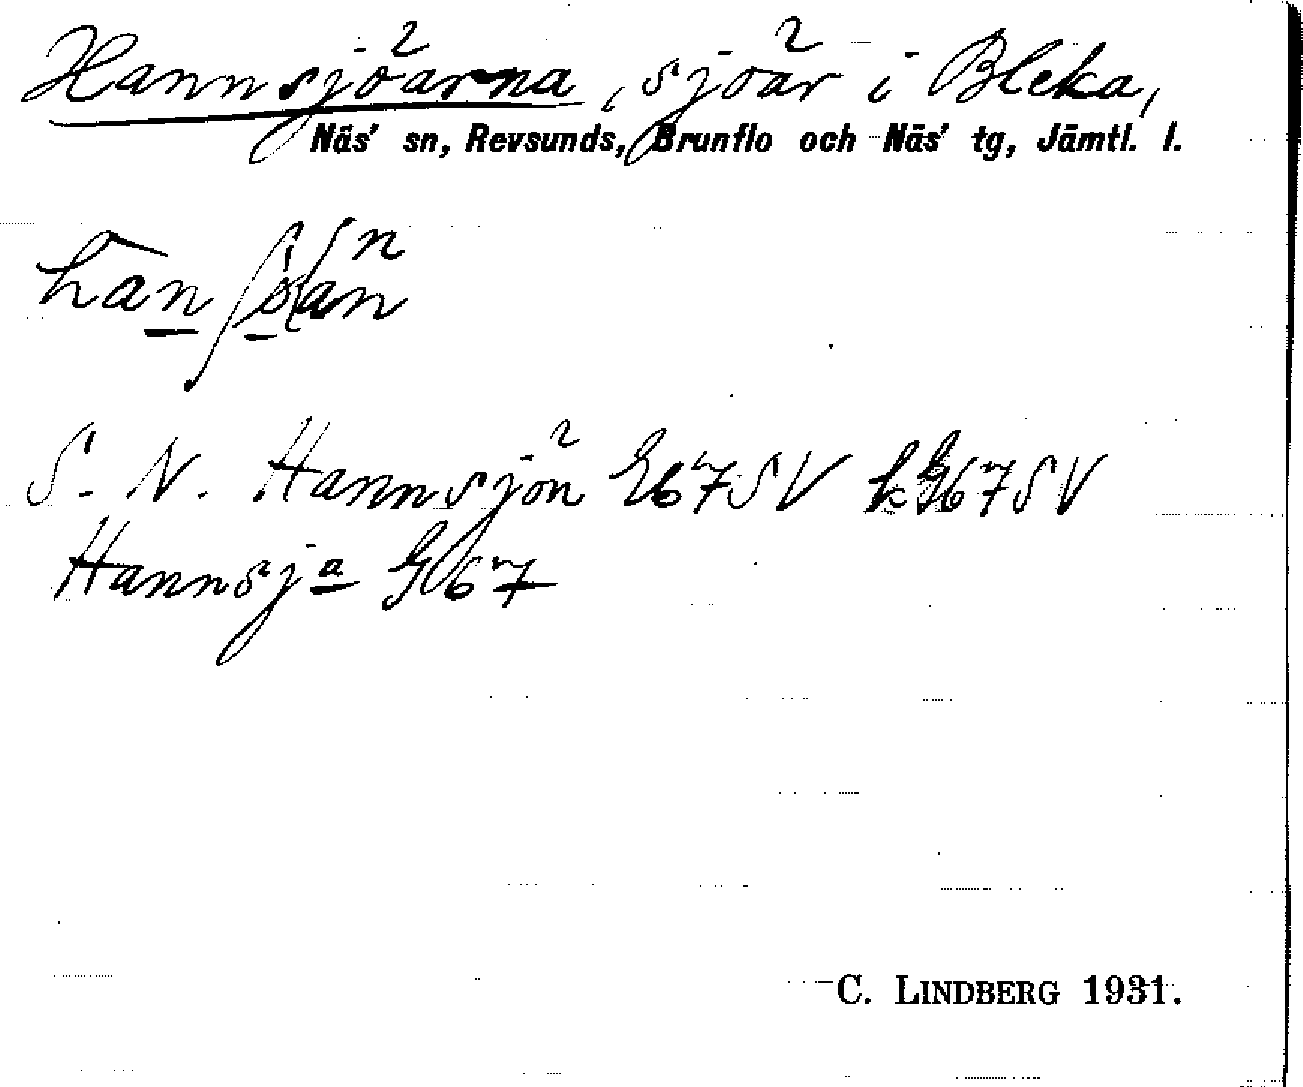 Hannsjöarna, sjöar i Bleka,
Näs' sn, Revsunds, Brunflo och Näs' tg, Jämtl. l.
S. N. Hannsjön G67SV kG67SV
Hannsja G67
C. LINDBERG 1931.